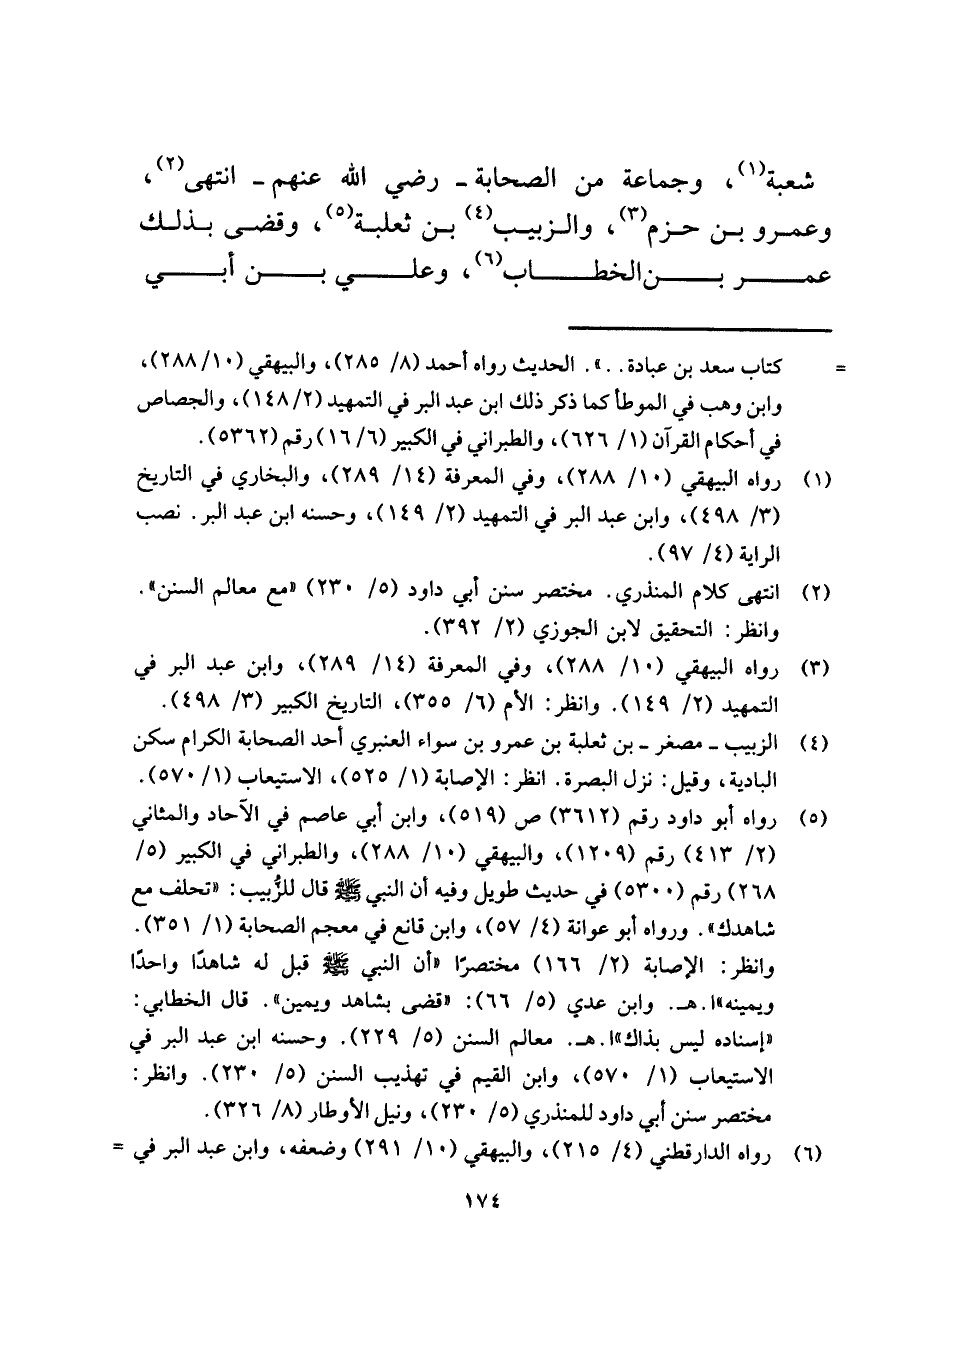 شعبة(١)، وجماعة من الصحابة ـ رضي الله عنهم ـ انتهى(٢)،
وعمرو بن حزم(٣)، والزبيب(٤) بن ثعلبة(٥)، وقضى بذلك
عمر بن الخطاب(٦)، وعلي بن أبي
= كتاب سعد بن عبادة...». الحديث رواه أحمد (٨/ ٢٨٥)، والبيهقي (١٠/ ٢٨٨)،
وابن وهب في الموطأ كما ذكر ذلك ابن عبد البر في التمهيد (٢/ ١٤٨)، والجصاص
في أحكام القرآن (١/ ٦٢٦)، والطبراني في الكبير (٦/ ١٦) رقم (٥٣٦٢).
(١) رواه البيهقي (١٠/ ٢٨٨)، وفي المعرفة (١٤/ ٢٨٩)، والبخاري في التاريخ
(٣/ ٤٩٨)، وابن عبد البر في التمهيد (٢/ ١٤٩)، وحسنه ابن عبد البر. نصب
الراية (٤/ ٩٧).
(٢) انتهى كلام المنذري. مختصر سنن أبي داود (٥/ ٢٣٠) «مع معالم السنن».
وانظر: التحقيق لابن الجوزي (٢/ ٣٩٢).
(٣) رواه البيهقي (١٠/ ٢٨٨)، وفي المعرفة (١٤/ ٢٨٩)، وابن عبد البر في
التمهيد (٢/ ١٤٩). وانظر: الأم (٦/ ٣٥٥)، التاريخ الكبير (٣/ ٤٩٨).
(٤) الزبيب ـ مصغر ـ بن ثعلبة بن عمرو بن سواء العنبري أحد الصحابة الكرام سكن
البادية، وقيل: نزل البصرة. انظر: الإصابة (١/ ٥٢٥)، الاستيعاب (١/ ٥٧٠).
(٥) رواه أبو داود رقم (٣٦١٢) ص (٥١٩)، وابن أبي عاصم في الآحاد والمثاني
(٢/ ٤١٣) رقم (١٢٠٩)، والبيهقي (١٠/ ٢٨٨)، والطبراني في الكبير (٥/
٢٦٨) رقم (٥٣٠٠) في حديث طويل وفيه أن النبي ﷺ قال للزُّبيب: «تحلف مع
شاهدك». ورواه أبو عوانة (٤/ ٥٧)، وابن قانع في معجم الصحابة (١/ ٣٥١).
وانظر: الإصابة (٢/ ١٦٦) مختصرًا «أن النبي ﷺ قبل له شاهدًا واحدًا
ويمينه»ا.هـ. وابن عدي (٥/ ٦٦): «قضى بشاهد ويمين». قال الخطابي:
«إسناده ليس بذاك»ا.هـ. معالم السنن (٥/ ٢٢٩). وحسنه ابن عبد البر في
الاستيعاب (١/ ٥٧٠)، وابن القيم في تهذيب السنن (٥/ ٢٣٠). وانظر:
مختصر سنن أبي داود للمنذري (٥/ ٢٣٠)، ونيل الأوطار (٨/ ٣٢٦).
(٦) رواه الدارقطني (٤/ ٢١٥)، والبيهقي (١٠/ ٢٩١) وضعفه، وابن عبد البر في =
١٧٤